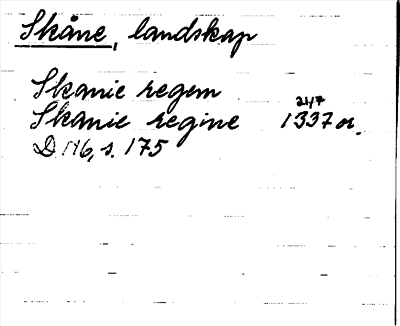 Skåne, landskap
Skanie regem
21/7
Skanie regine 1337 or.
D 116, s. 175